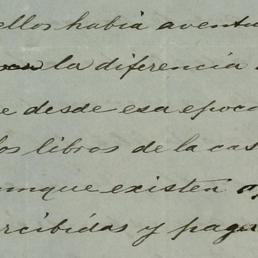 ellos había aventu
la diferencia
e desde esa epoca
los libros de la cas
unque existen
rcibidas y pag